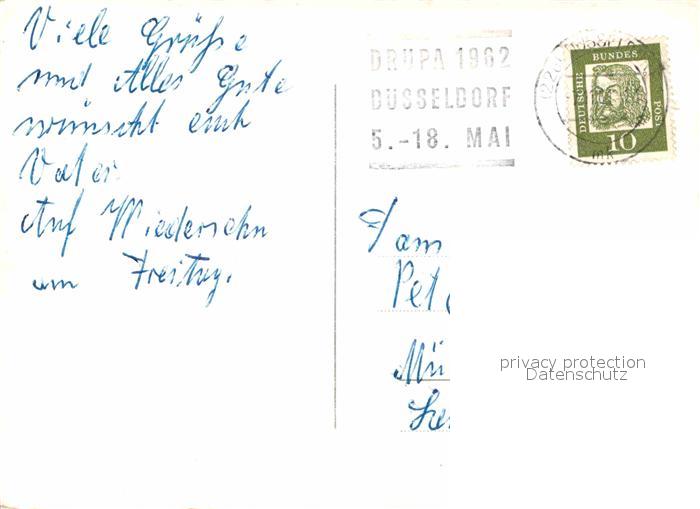 Viele Grüße
und Alles Gute
wünscht euch
Vater.
Auf Wiedersehn
am Freitag.
DRUPA 1962
DÜSSELDORF
5.-18. MAI
DEUTSCHE
BUNDES
POST
10
Fam
Pet
Mü
privacy protection
Datenschutz